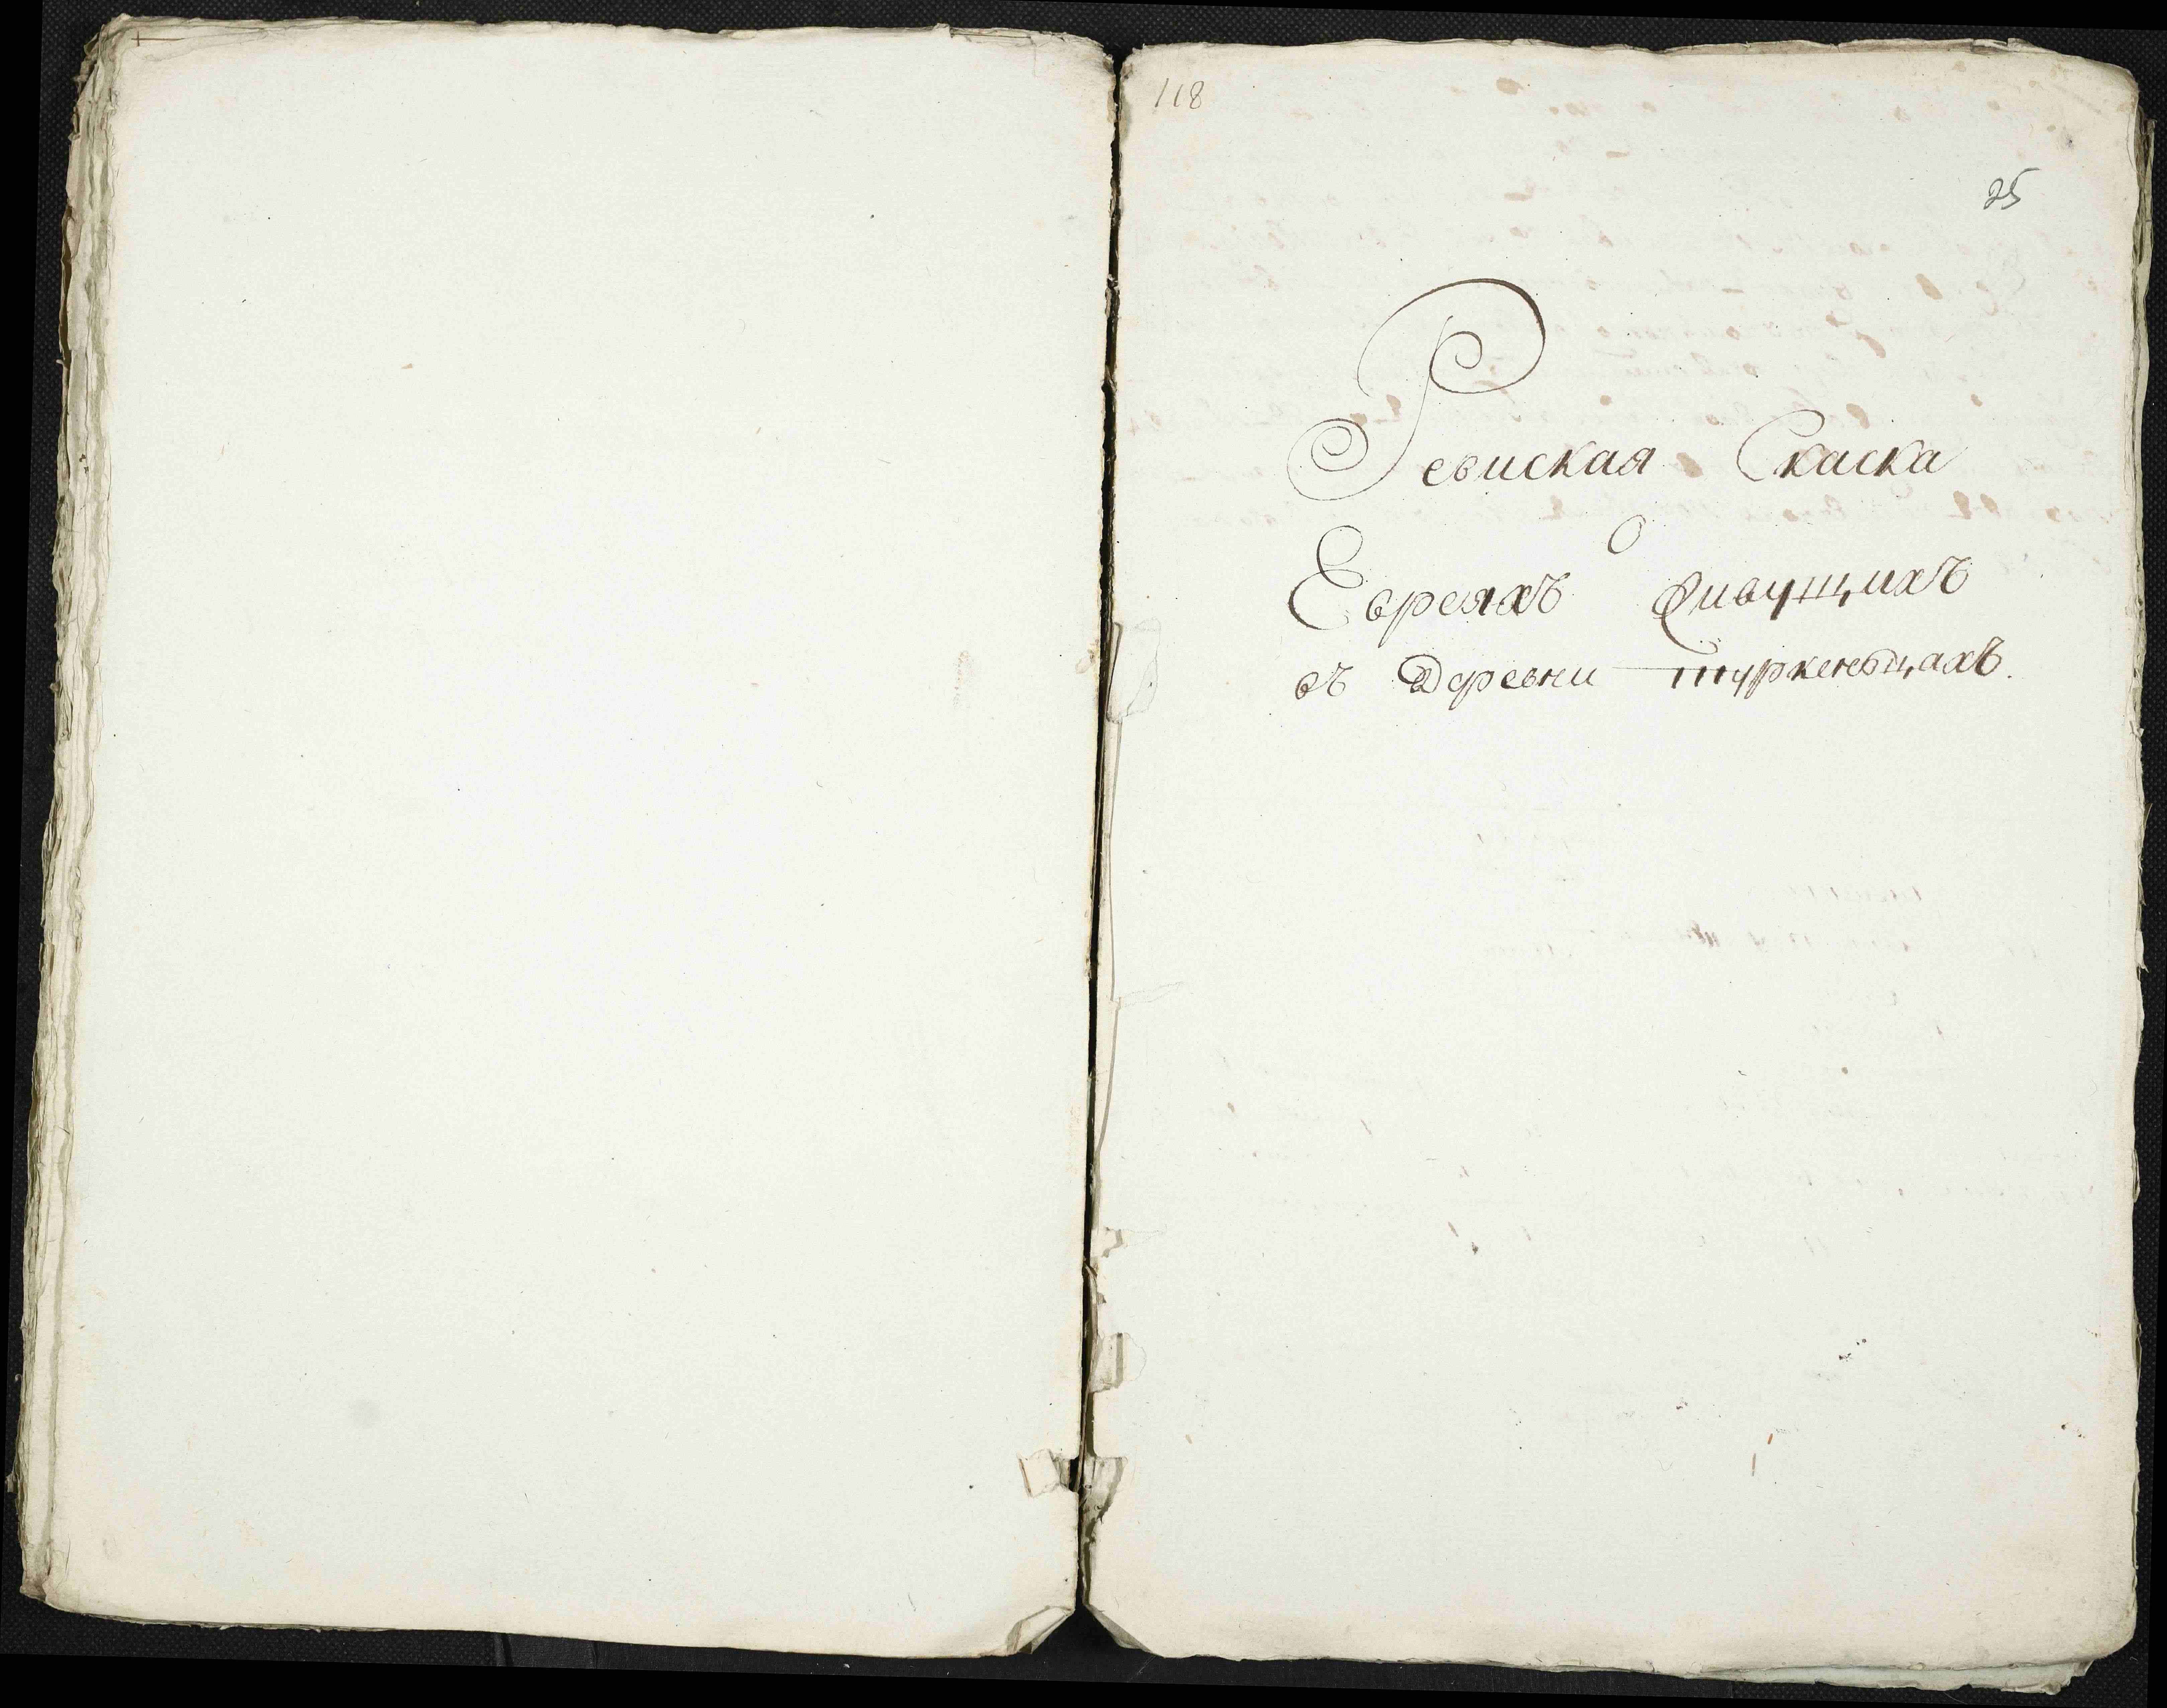 118
25
Ревиская Скаска
О
Евреяхъ Живущихъ
въ Деревни туркенѣцахъ.